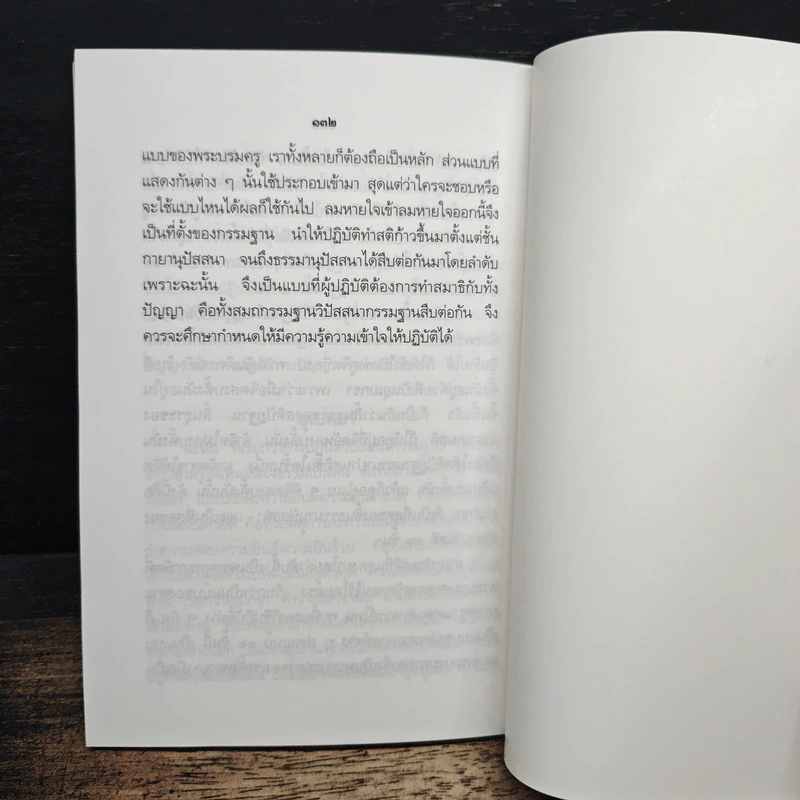 ๑๓๒
แบบของพระบรมครู เราทั้งหลายก็ต้องถือเป็นหลัก ส่วนแบบที่
แสดงกันต่าง ๆ นั้นใช้ประกอบเข้ามา สุดแต่ว่าใครจะชอบหรือ
จะใช้แบบไหนได้ผลก็ใช้กันไป ลมหายใจเข้าลมหายใจออกนี้จึง
เป็นที่ตั้งของกรรมฐาน นำให้ปฏิบัติทำสติก้าวขึ้นมาตั้งแต่ชั้น
กายานุปัสสนา จนถึงธรรมานุปัสสนาได้สืบต่อกันมาโดยลำดับ
เพราะฉะนั้น จึงเป็นแบบที่ผู้ปฏิบัติต้องการทำสมาธิกับทั้ง
ปัญญา คือทั้งสมถกรรมฐานวิปัสสนากรรมฐานสืบต่อกัน จึง
ควรจะศึกษากำหนดให้มีความรู้ความเข้าใจให้ปฏิบัติได้